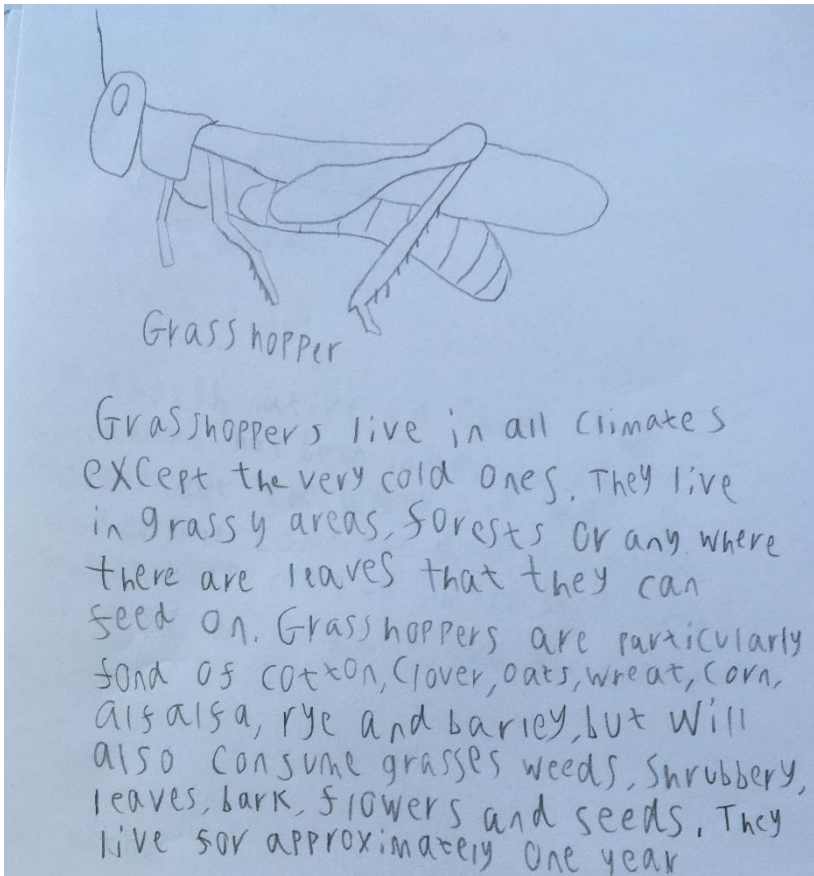 Grasshopper
Grasshoppers live in all climates
except the very cold ones. They live
in grassy areas, forests or any where
there are leaves that they can
feed on. Grasshoppers are particularly
fond of cotton, Clover, oats, wreat, corn,
alfalfa, rye and barley, but will
also consume grasses weeds, shrubbery,
leaves, bark, flowers and seeds. They
live for approximately one year